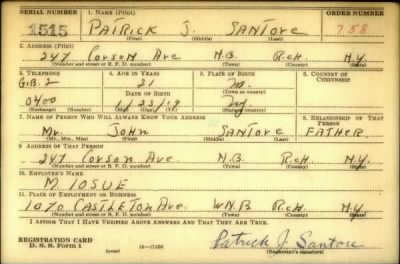 SERIAL NUMBER 1. NAME (Print) ORDER NUMBER
1515 PATRICK J. SANTORE 758
(First) (Middle) (Last)
2. ADDRESS (Print)
247 CORSON AVE N.B. RICH. N.Y.
(Number and street or R. F. D. number) (Town) (County) (State)
3. TELEPHONE 4. AGE IN YEARS 5. PLACE OF BIRTH 6. COUNTRY OF CITIZENSHIP
G.B. 2 21
DATE OF BIRTH (Town or county)
0400 NY
(Exchange) (Number) (Mo.) (Day) (Yr.) (State or country)
7. NAME OF PERSON WHO WILL ALWAYS KNOW YOUR ADDRESS 8. RELATIONSHIP OF THAT PERSON
Mr. JOHN SANTORE FATHER
(Mr., Mrs., Miss) (First) (Middle) (Last)
9. ADDRESS OF THAT PERSON
247 CORSON AVE. N.B. RICH. N.Y.
(Number and street or R. F. D. number) (Town) (County) (State)
10. EMPLOYER'S NAME
M. IOSUE
11. PLACE OF EMPLOYMENT OR BUSINESS
1070 CASTLETON AVE. W.N.B RICH. N.Y.
(Number and street or R. F. D. number) (Town) (County) (State)
I AFFIRM THAT I HAVE VERIFIED ABOVE ANSWERS AND THAT THEY ARE TRUE.
REGISTRATION CARD
D. S. S. Form 1 (over) Patrick J. Santore
(Registrant's signature)